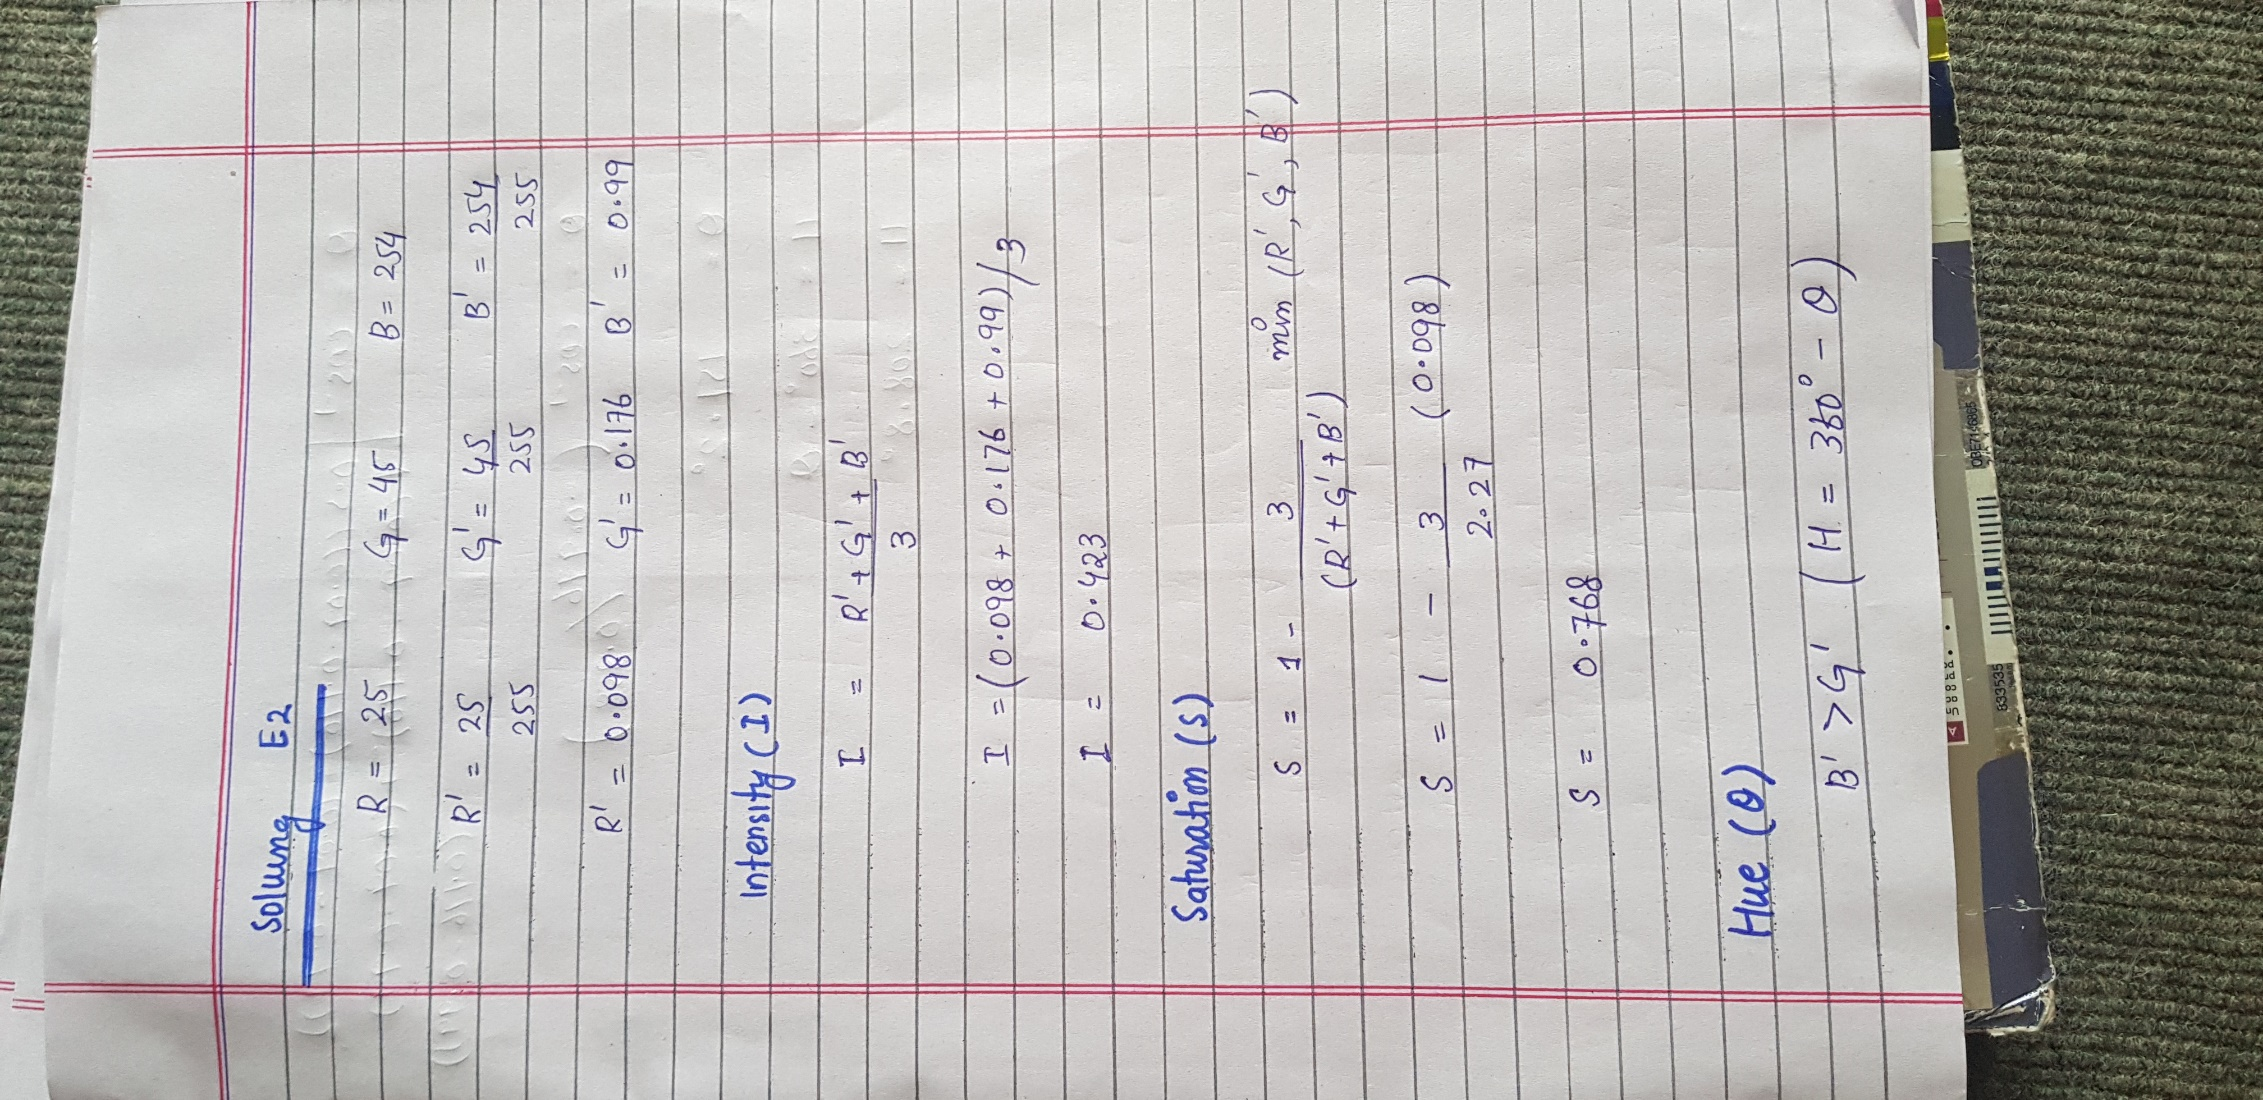 Solung E2
R = 25 G = 45 B = 254
R' = 25/255 G' = 45/255 B' = 254/255
R' = 0.098 G' = 0.176 B' = 0.99
Intensity (I)
I = R' + G' + B' / 3
I = (0.098 + 0.176 + 0.99)/3
I = 0.423
Saturation (S)
S = 1 - 3/(R' + G' + B') min (R', G', B')
S = 1 - 3/2.27 (0.098)
S = 0.768
Hue (θ)
B' > G' (H = 360° - θ)